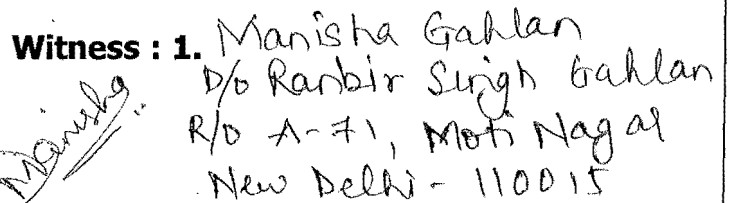 Witness : 1. Manisha Gahlan
D/o Ranbir Singh Gahlan
R/o A-71, Moti Nagar
New Delhi - 110015
Manisha